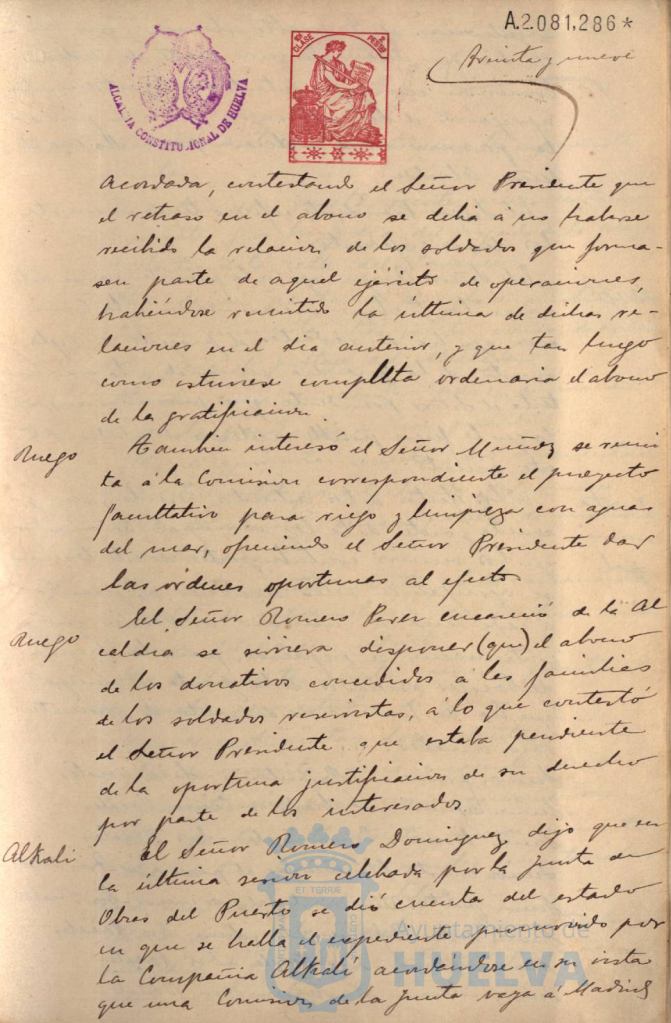 A.2.081,286*
Treinta y nueve
ALCALDIA CONSTITUCIONAL DE HUELVA
CLASE
acordada, contestando el Señor Presidente que
el retraso en el abono se debia á no haberse
recibido la relacion de los soldados que forma-
sen parte de aquél ejército de operaciones,
habiéndose remitido la última de dichas re-
laciones en el dia anterior, y que tan luego
como estuviese completa ordenaria el abono
de la gratificacion.
Ruego
Tambien interesó el Señor Muñoz se remi
ta á la Comision correspondiente el proyecto
facultativo para riego y limpieza con aguas
del mar, ofreciendo el Señor Presidente dar
las órdenes oportunas al efecto
Ruego
El Señor Romero Perez encareció de la Al
caldia se sirviera disponer (que) el abono
de los donativos concedidos á las familias
de los soldados reservistas, á lo que contestó
el Señor Presidente que estaba pendiente
de la oportuna justificacion de su derecho
por parte de los interesados.
Alkali
El Señor Romero Dominguez dijo que en
la última sesion celebada por la Junta de
Obras del Puerto se dió cuenta del estado
en que se halla el expediente promovido por
la Compañia Alkali acordandose en su vista
que una Comision de la Junta vaya á Madrid
Ayuntamiento de
HUELVA